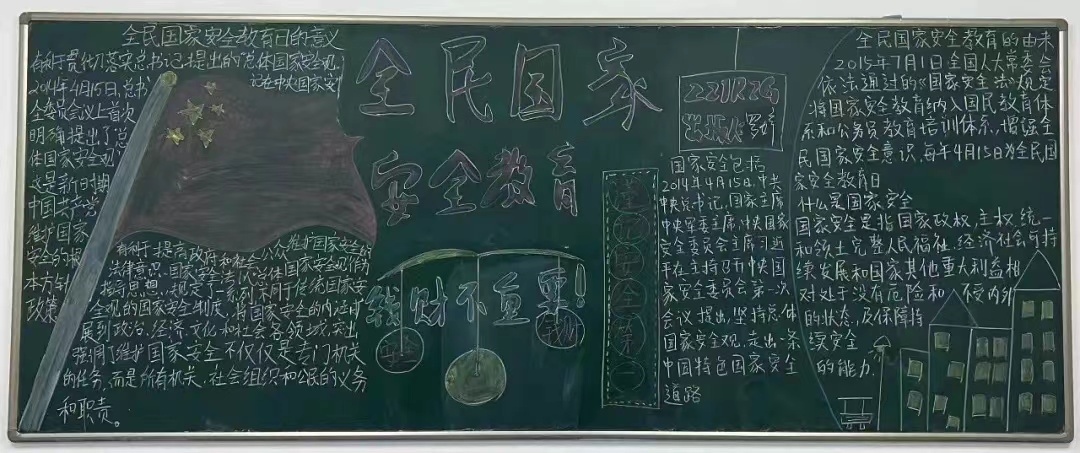 全民国家安全教育日的意义
有利于贯彻落实总书记提出的"总体国家安全观
2014年4月15日,总书
记在中央国家安
全委员会议上首次
明确提出了"总
体国家安全观"
这是新时期
中国共产党
维护国家
安全的根
本方针
政策
有利于提高政府和社会公众维护国家安全的
法律意识.国家安全法以总体国家安全观作为
指导思想,规定了一系列采用于传统国家安
全观的国家安全制度,将国家安全的内涵扩
展到政治、经济、文化和社会各领域,突出
强调了维护国家安全不仅仅是专门机关
的任务,而是所有机关、社会组织和公民的义务
和职责。
全民国家
安全教育
钱财不鱼重!
安全
钱财
221RZG
出板人
谨
安
全
第
一
国家安全包括
2014年4月15日,中共
中央总书记、国家主席
中央军委主席,中央国家
安全委员会主席习近
平在主持召开中央国
家安全委员会第一次
会议提出,坚持总体
国家安全观,走出一条
中国特色国家安全
道路
全民国家安全教育的由来
2015年7月1日全国人大常委会
依法通过的《国家安全法》规定
将国家安全教育纳入国民教育体
系和公务员教育培训体系,增强全
民国家安全意识,每年4月15日为全民国
家安全教育日
什么是国家安全
国家安全是指国家政权、主权、统一
和领土完整、人民福祉、经济社会可持
续发展和国家其他重大利益相
对处于没有危险和 不受内外
的状态,及保障持
续安全
的能力.